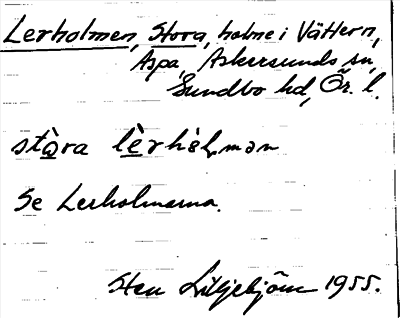 Lerholmen, Stora, holme i Vättern,
Aspa, Askersunds sn,
Sundbo hd, Ör. l.
stɔ̀ra lèrhɔ̀lmən
Se Lerholmarna.
Sten Liljebjörn 1955.